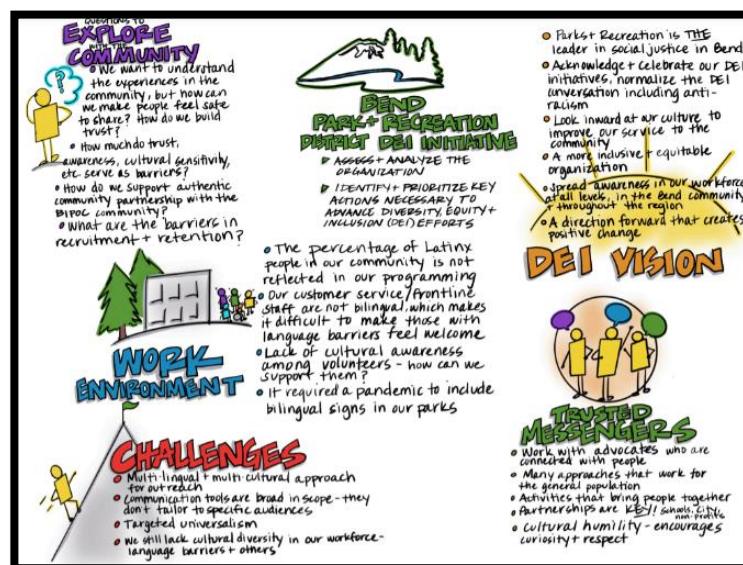 QUESTIONS TO
EXPLORE
WITH THE
COMMUNITY
• We want to understand
the experiences in the
community, but how can
we make people feel safe
to share? How do we build
trust?
• How much do trust,
awareness, cultural sensitivity,
etc. serve as barriers?
• How do we support authentic
community partnership with the
BIPOC community?
• What are the barriers in
recruitment + retention?
BEND
PARK + RECREATION
DISTRICT DEI INITIATIVE
ASSESS + ANALYZE THE
ORGANIZATION
IDENTIFY + PRIORITIZE KEY
ACTIONS NECESSARY TO
ADVANCE DIVERSITY, EQUITY +
INCLUSION (DEI) EFFORTS
• Parks + Recreation is THE
leader in social justice in Bend
• Acknowledge + celebrate our DEI
initiatives, normalize the DEI
conversation including anti-
racism
• Look inward at our culture to
improve our service to the
community
• A more inclusive + equitable
organization
• Spread awareness in our workforce
at all levels, in the Bend community
+ throughout the region
• A direction forward that creates
positive change
DEI VISION
WORK
ENVIRONMENT
• The percentage of Latinx
people in our community is not
reflected in our programming
• Our customer service/frontline
staff are not bilingual, which makes
it difficult to make those with
language barriers feel welcome
• Lack of cultural awareness
among volunteers - how can we
support them?
• It required a pandemic to include
bilingual signs in our parks
CHALLENGES
• Multi-lingual + multi-cultural approach
for outreach
• Communication tools are broad in scope - they
don't tailor to specific audiences
• Targeted universalism
• We still lack cultural diversity in our workforce -
language barriers + others
TRUSTED
MESSENGERS
• Work with advocates who are
connected with people
• Many approaches that work for
the general population
• Activities that bring people together
• Partnerships are KEY! schools, city,
non-profits
• Cultural humility - encourages
curiosity + respect